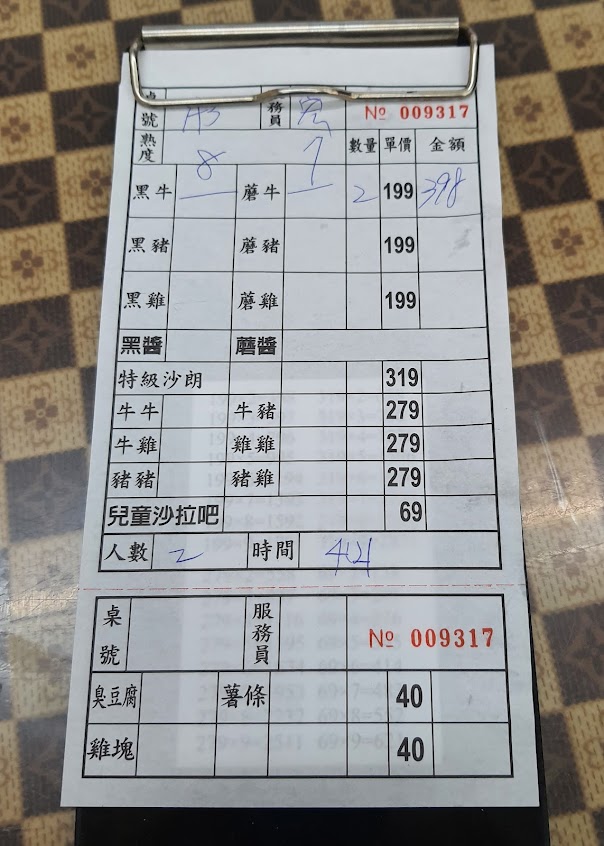 桌號 A3 務員 № 009317
熟度 8 7 數量 單價 金額
黑牛 — 蘑牛 — 2 199 398
黑豬 蘑豬 199
黑雞 蘑雞 199
黑醬 蘑醬
特級沙朗 319
牛牛 牛豬 279
牛雞 雞雞 279
豬豬 豬雞 279
兒童沙拉吧 69
人數 2 時間
桌號 服務員 № 009317
臭豆腐 薯條 40
雞塊 40